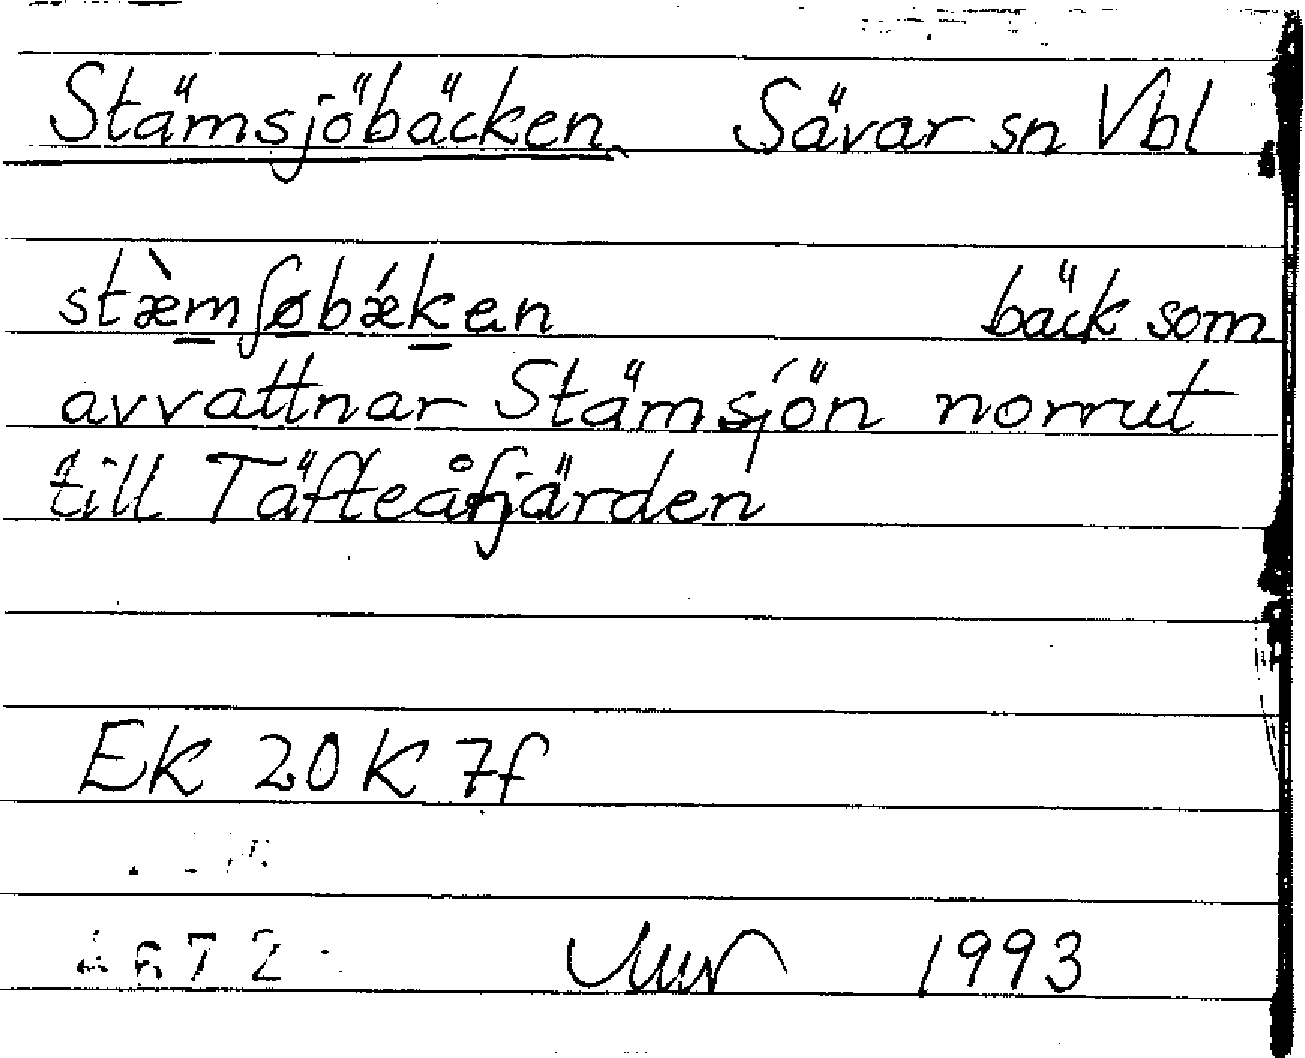 Stämsjöbäcken Sävar sn Vbl
stæ̀mʃøbǽken bäck som
avvattnar Stämsjön norrut
till Täfteåfjärden
EK 20K 7f
1993